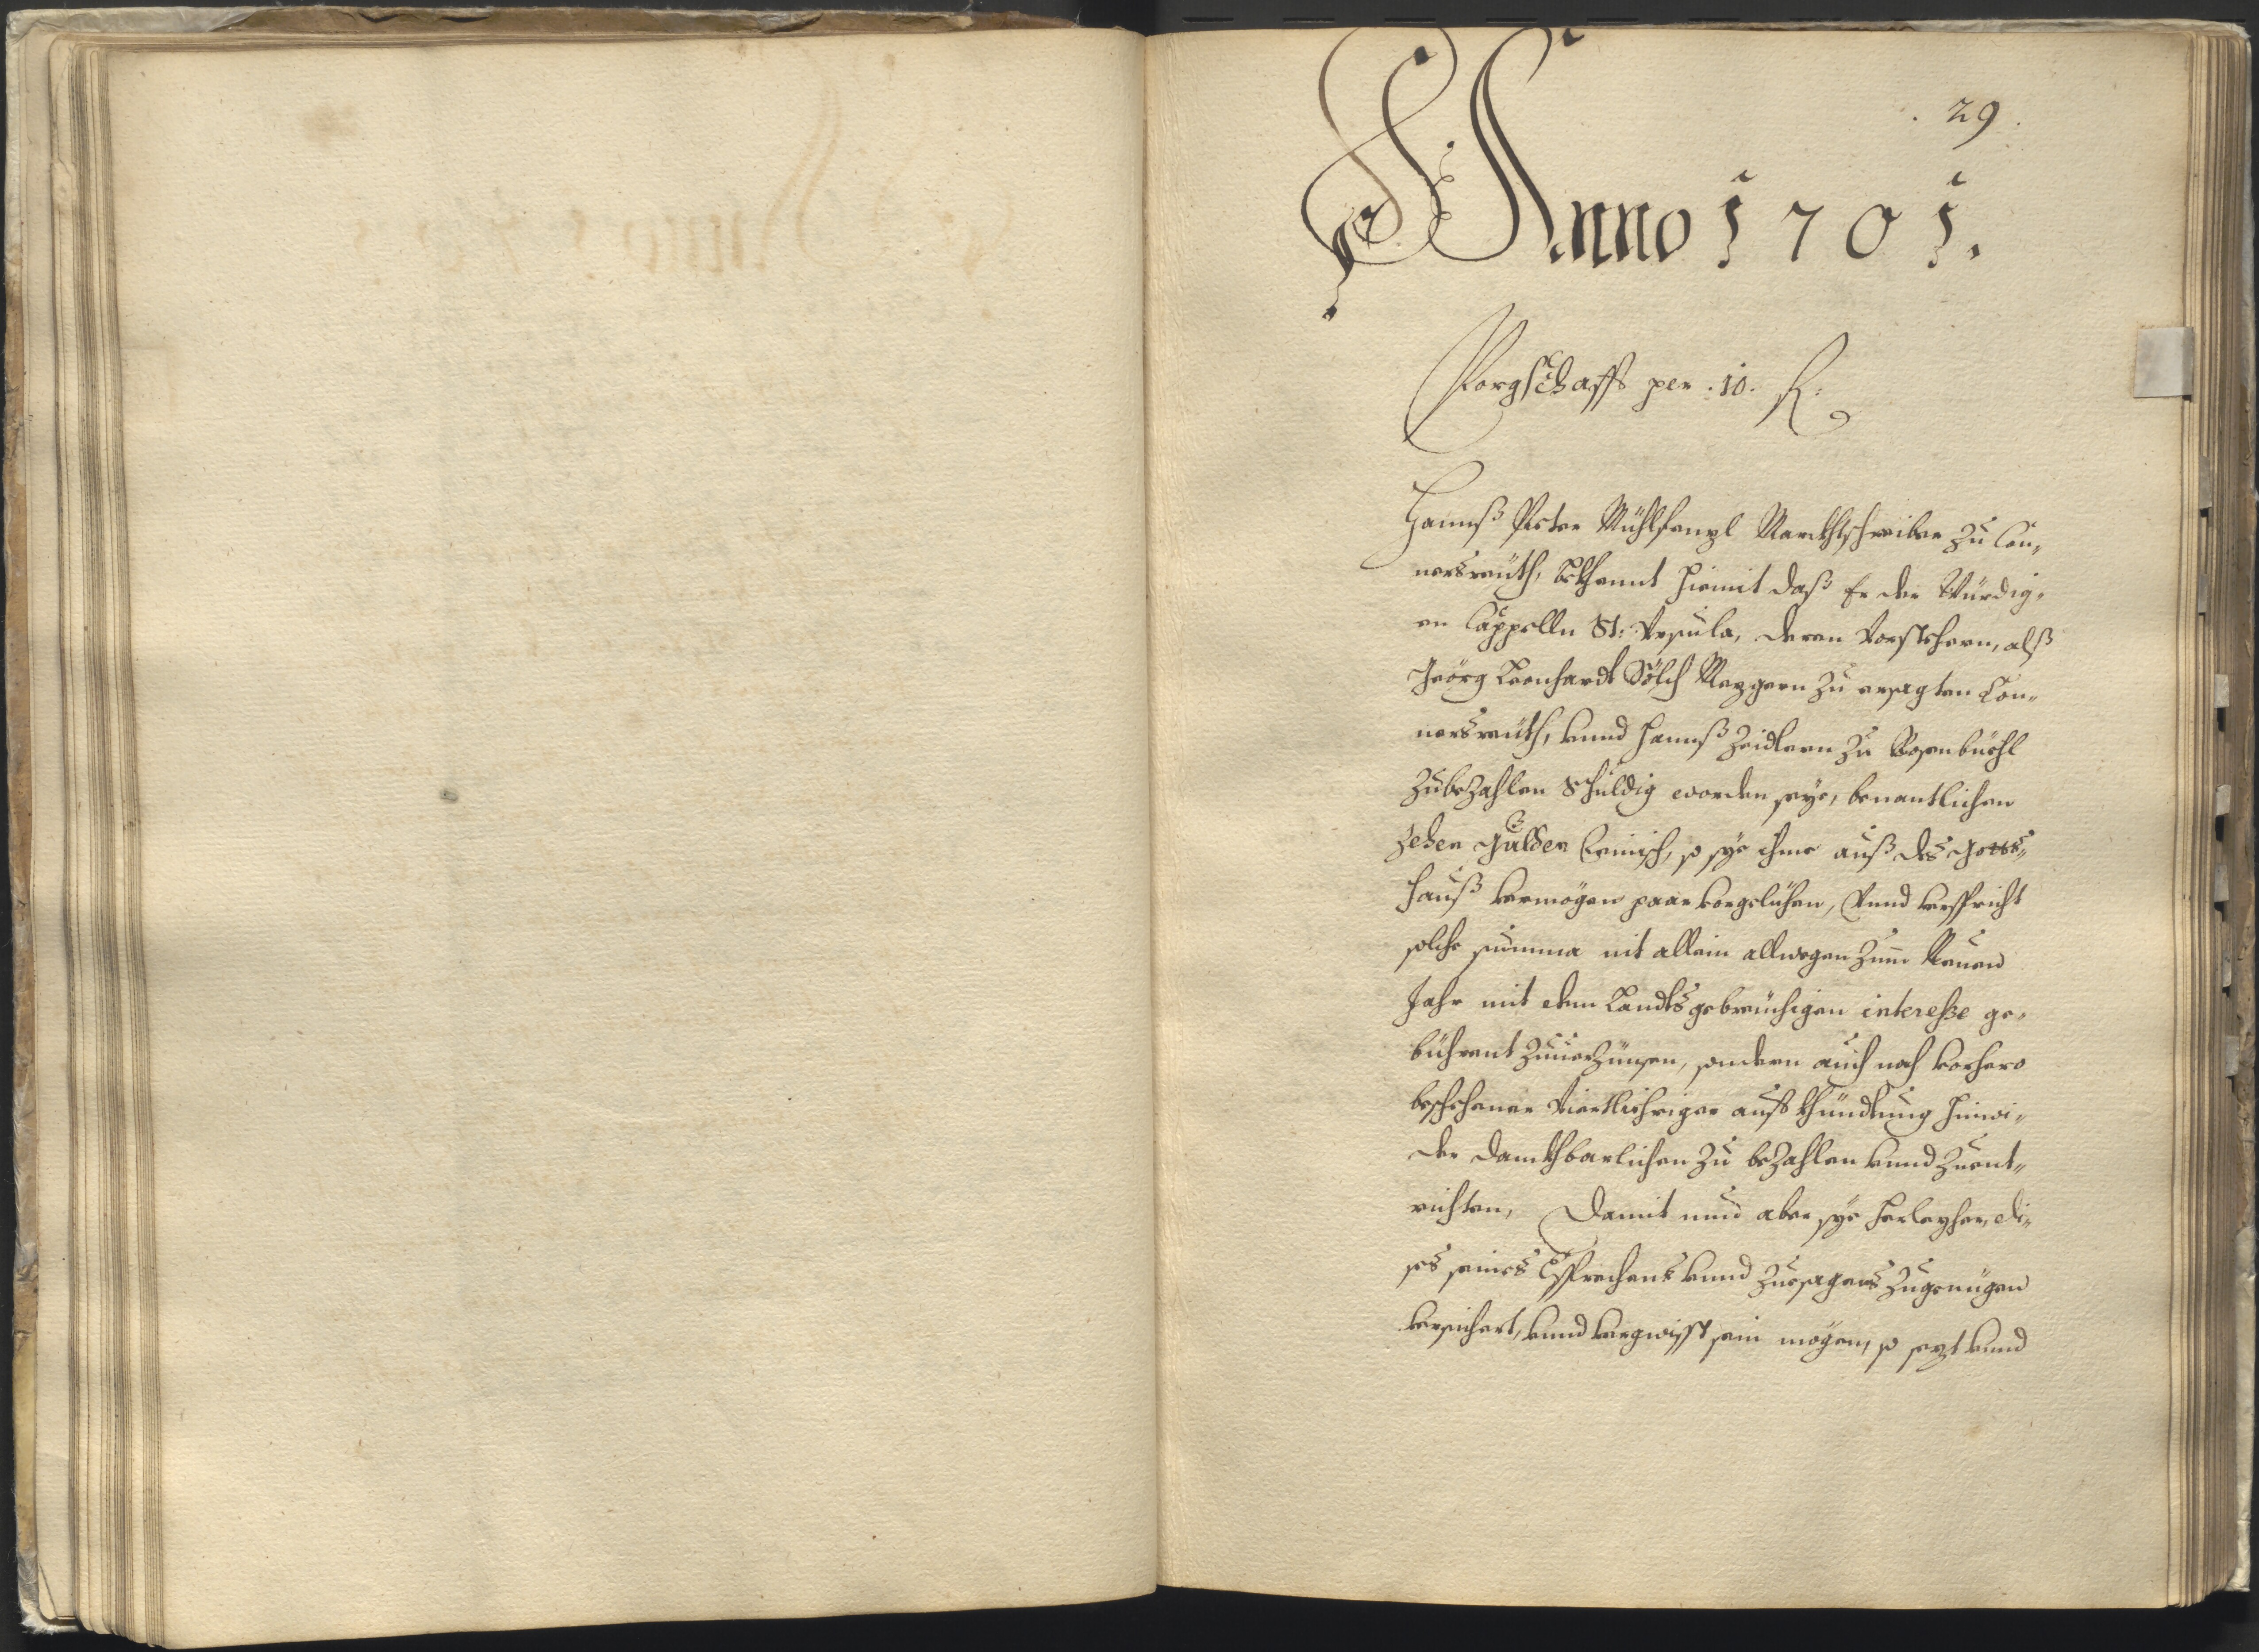 . 29.
Anno 1701.
Porgschafft per .10. fl:
Hannß Peter Mühlhenzl Marckhtschreiber zu Con„
nersreuth, bekhennt hiemit daß Er der Würdig„
en Cappelln St: Vrsula, deren Vorstehern, alß
Geörg Leonhardt Sölch Mezgern zu ersagten Con„
nersreuth, vnnd Hannß Zeidlern zu Rosenbüehl
zubezahlen Schuldig worden seye, benantlichen
zehen Gulden Reinisch, so sye ihme auß des Gotts„
hauß vermögen paar vorgelichen, Vnnd verspricht
solche summa nit allein allwegen zum Neuen
Jahr mit dem Landtsgebreuchigen interesse ge„
bührent zuuerzünsen, sondern auch nach vorhero
beschehener Viertljähriger aufkhündtung hinwi„
der danckhbarlichen zu bezahlen vnnd zuent„
richten, Damit nun aber sye Herleyher, di„
ses seines Versprechens vnnd zuesagens zugenügen
versichert, vnnd vergwisst sein mögen, so sezt vnnd